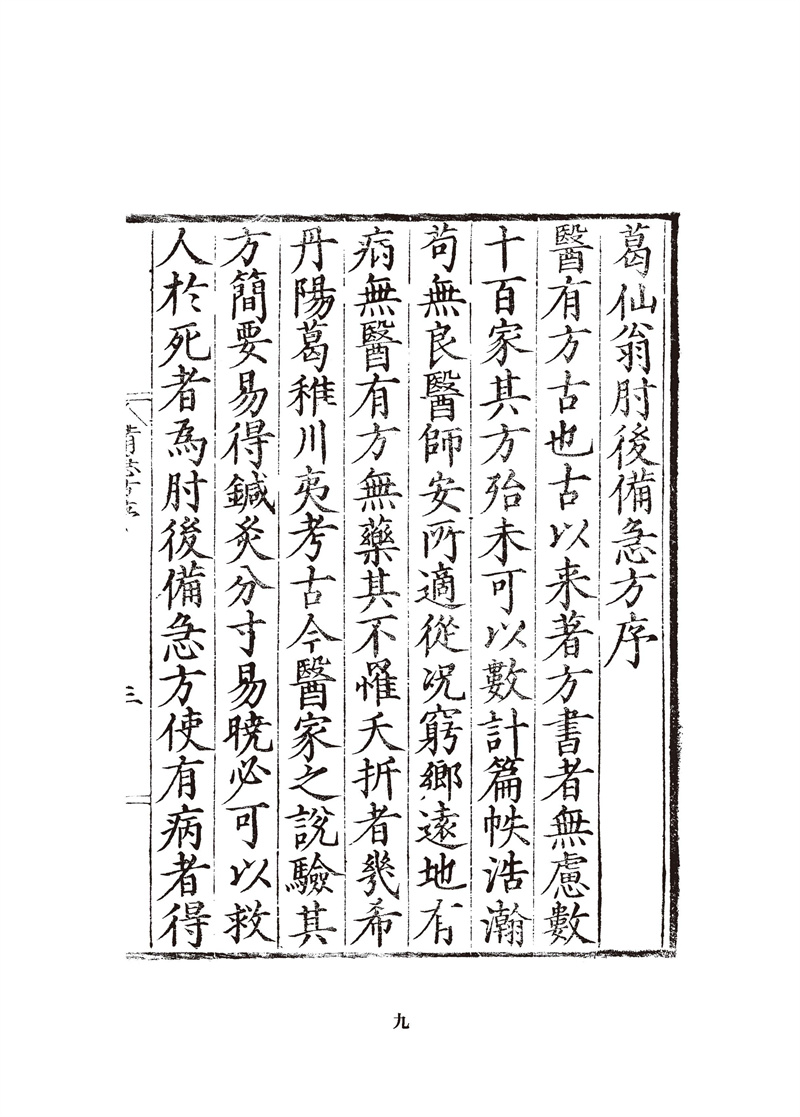 葛仙翁肘後備急方序
醫有方古也古以来著方書者無慮數
十百家其方殆未可以數計篇帙浩瀚
苟無良醫師安所適從况窮鄉遠地有
病無醫有方無藥其不罹夭折者幾希
丹陽葛稚川夷考古今醫家之說驗其
方簡要易得鍼灸分寸易曉必可以救
人於死者為肘後備急方使有病者得
三
九